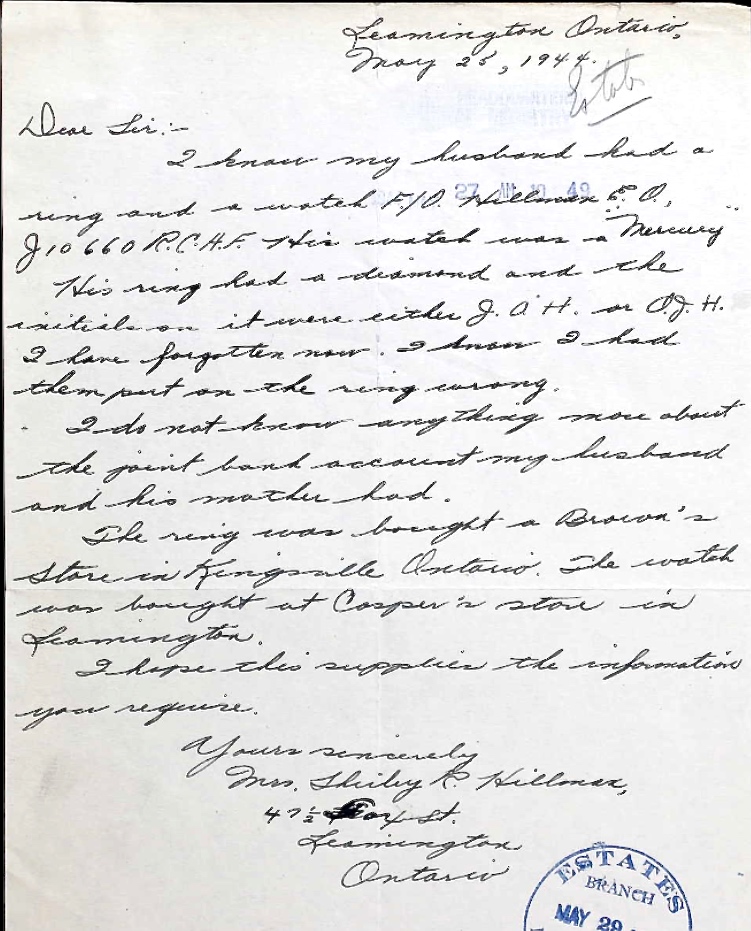 Leamington Ontario,
May 25, 1944.
Estates
Dear Sir:-
I know my husband had a
27 10 49
ring and a watch F/O. Hillman E. O.,
J10660 R.C.A.F. His watch was a "Mercury"
His ring had a diamond and the
initials on it were either J. O. H. or O. J. H.
I have forgotten now. I know I had
them put on the ring wrong.
I do not know anything more about
the joint bank account my husband
and his mother had.
The ring was bought a Brown's
Store in Kingsville Ontario. The watch
was bought at Cosper's store in
Leamington.
I hope this supplies the information
you require.
Yours sincerely
Mrs. Shirley R. Hillman,
47½ Fox St.
Leamington
Ontario
ESTATES
BRANCH
MAY 29